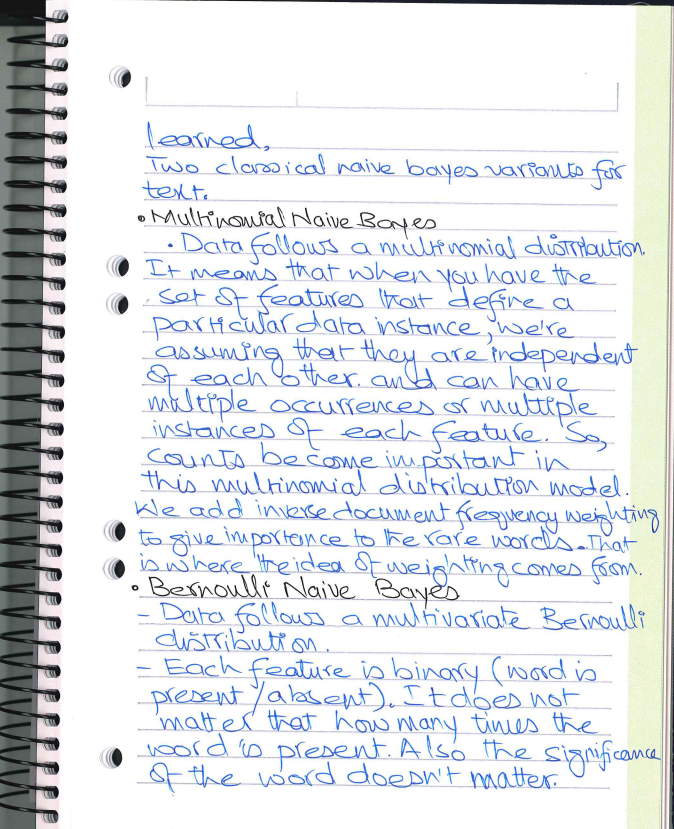 learned,
Two classical naive bayes variants for
text.
• Multinomial Naive Bayes
• Data follows a multinomial distribution.
It means that when you have the
set of features that define a
particular data instance, we're
assuming that they are independent
of each other. and can have
multiple occurrences or multiple
instances of each feature. So,
counts become important in
this multinomial distribution model.
We add inverse document frequency weighting
to give importance to the rare words. That
is where the idea of weighting comes from.
• Bernoulli Naive Bayes
- Data follows a multivariate Bernoulli
distribution.
- Each feature is binary (word is
present/absent). It does not
matter that how many times the
word is present. Also the significance
of the word doesn't matter.